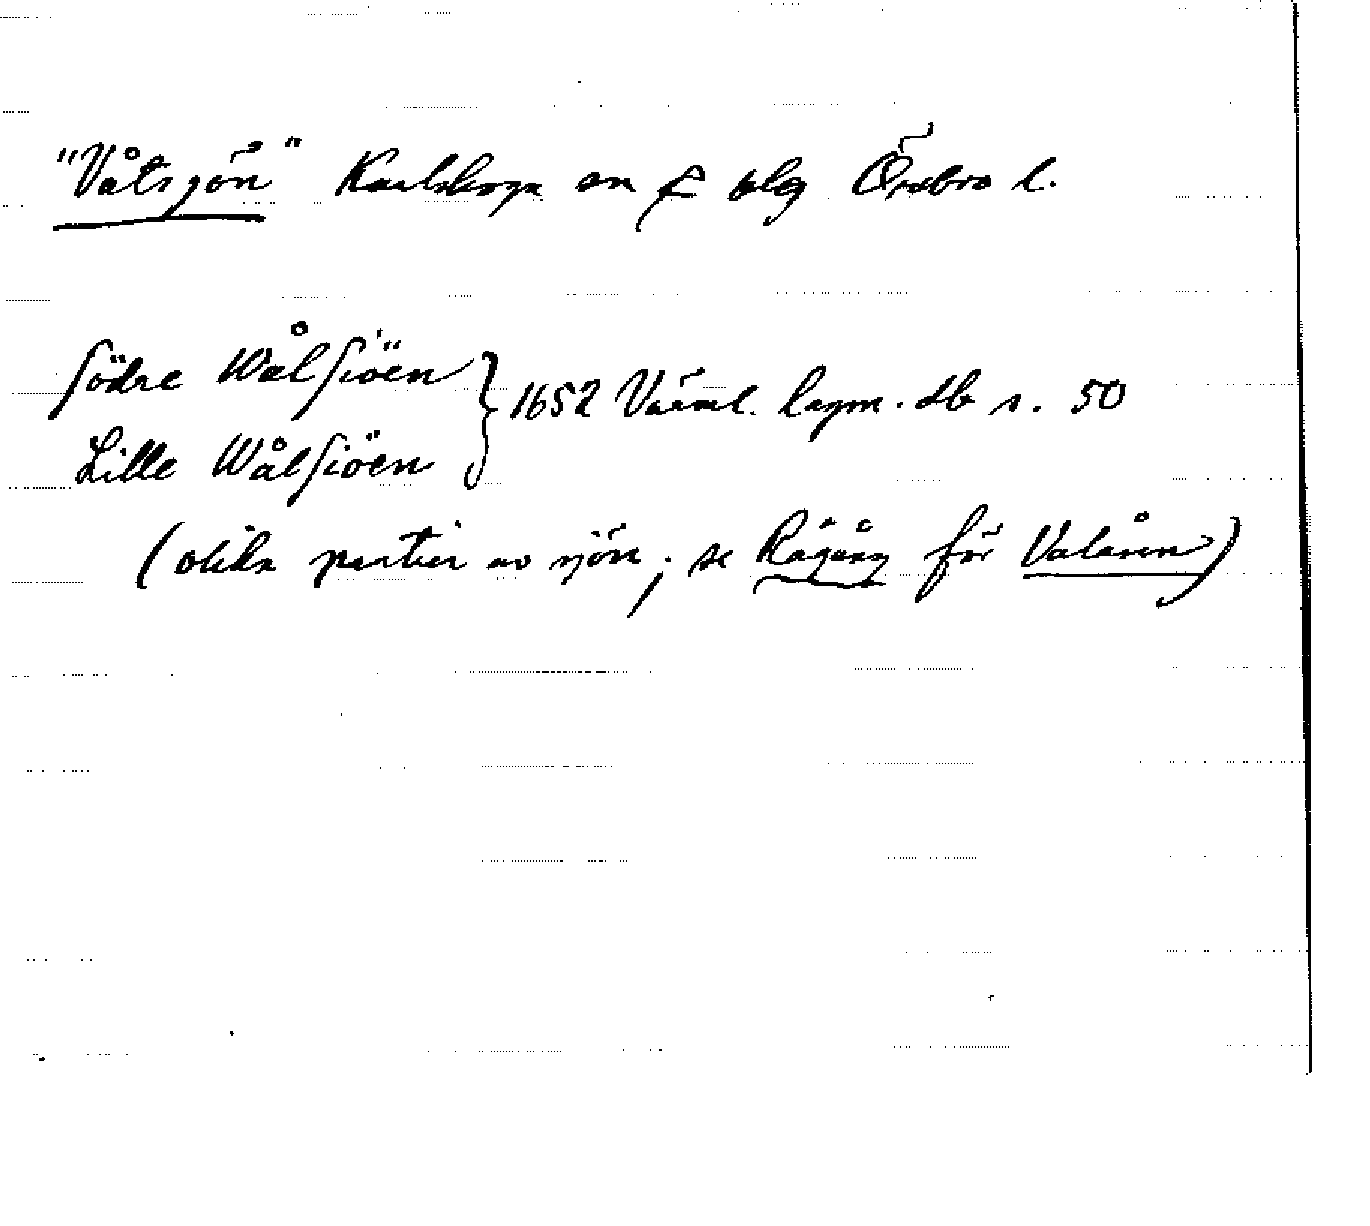 "Våtsjön" Karlskoga sn £ blg Örebro l.
Södre Wålsiöen } 1652 Värml. lagm. db s. 50
Lille Wålsiöen
(olika partier av sjön; se Rågång för Valåsen)